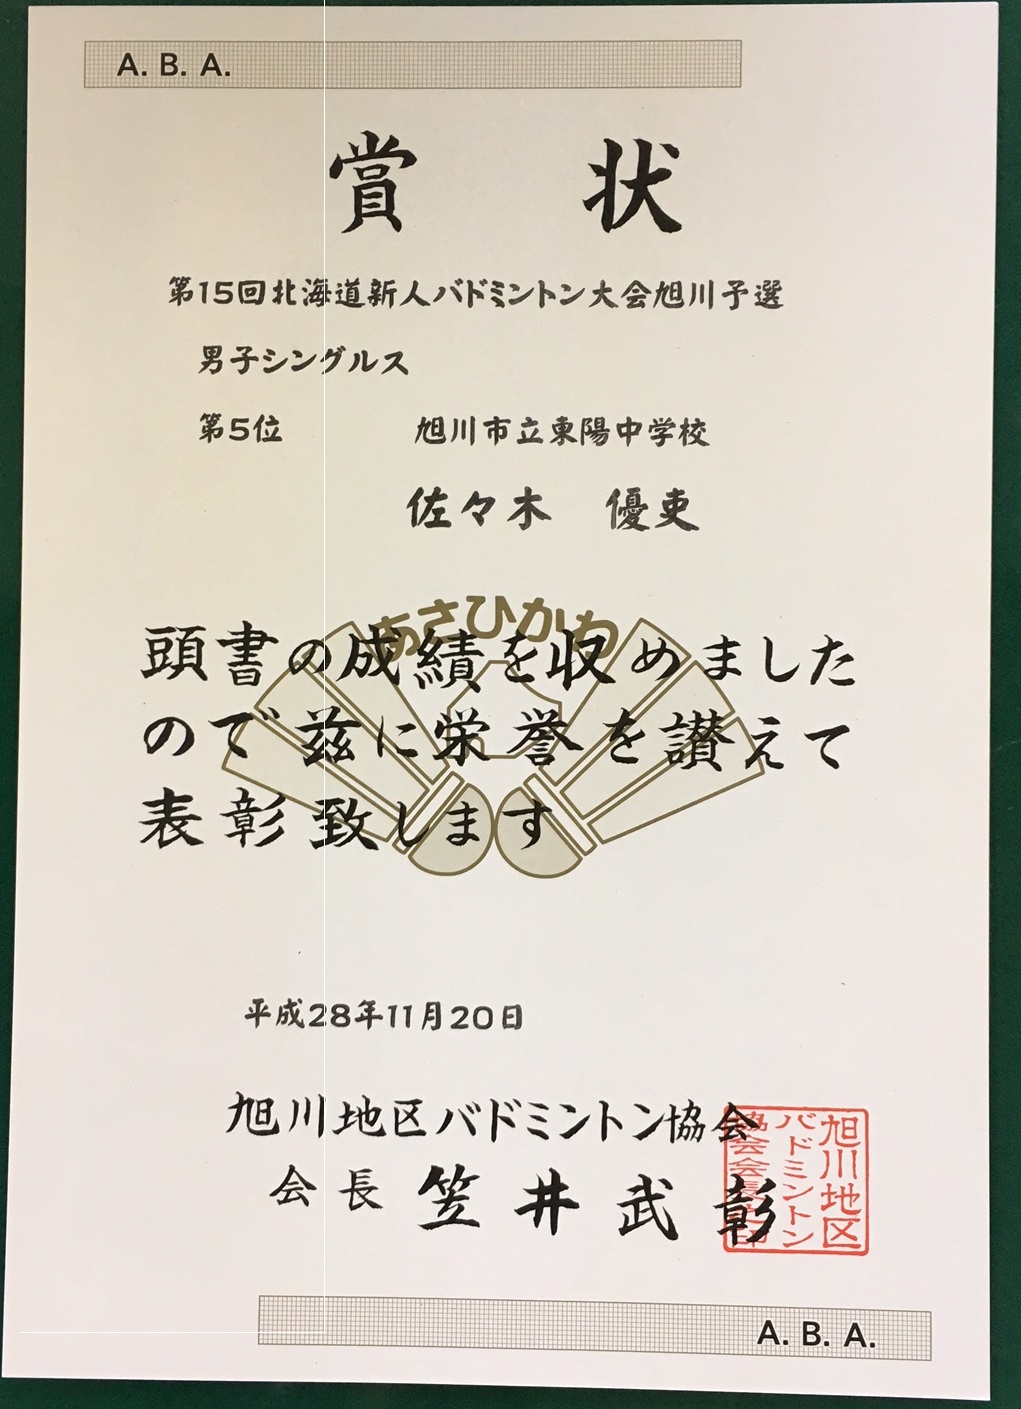 A. B. A.
賞 状
第15回北海道新人バドミントン大会旭川予選
男子シングルス
第5位 旭川市立東陽中学校
佐々木 優吏
あさひかわ
頭書の成績を収めました
ので茲に栄誉を讃えて
表彰致します
平成28年11月20日
旭川地区バドミントン協会
会長 笠井武彰
旭川地区
バドミントン
協会会長之印
A. B. A.